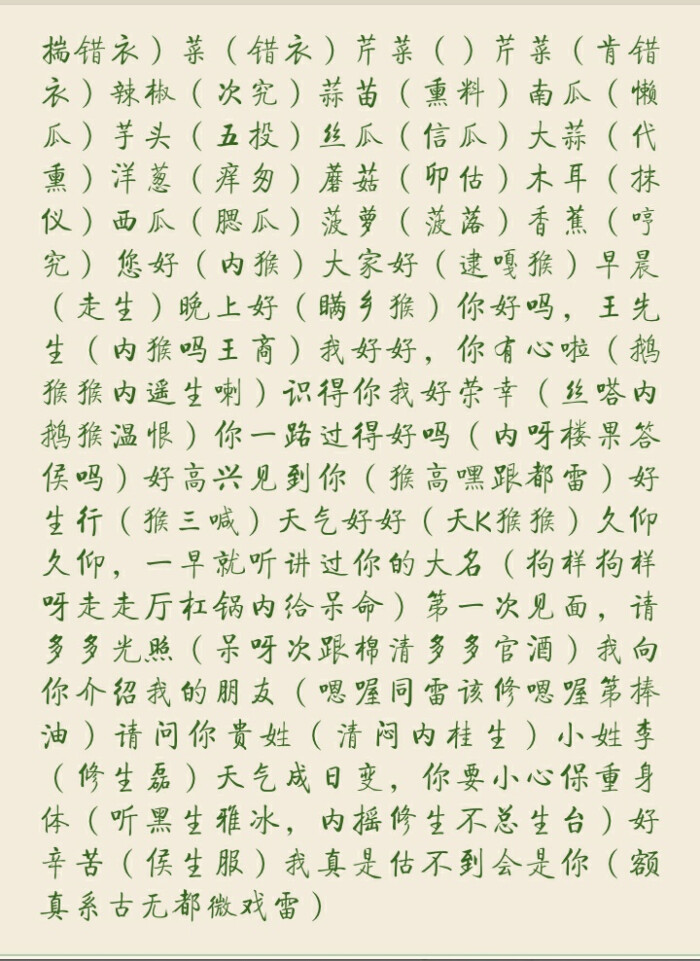 揣错衣）菜（错衣）芹菜（）芹菜（肯错
衣）辣椒（次究）蒜苗（熏料）南瓜（懒
瓜）芋头（五投）丝瓜（信瓜）大蒜（代
熏）洋葱（痒匆）蘑菇（卯估）木耳（抹
仪）西瓜（腮瓜）菠萝（菠落）香蕉（哼
究）您好（内猴）大家好（逮嘎猴）早晨
（走生）晚上好（瞒乡猴）你好吗，王先
生（内猴吗王商）我好好，你有心啦（鹅
猴猴内遥生喇）识得你我好荣幸（丝嗒内
鹅猴温恨）你一路过得好吗（内呀楼果答
侯吗）好高兴见到你（猴高嘿跟都雷）好
生行（猴三喊）天气好好（天K猴猴）久仰
久仰，一早就听讲过你的大名（狗样狗样
呀走走厅杠锅内给呆命）第一次见面，请
多多光照（呆呀次跟棉清多多官酒）我向
你介绍我的朋友（嗯喔同雷该修嗯喔第捧
油）请问你贵姓（清闷内桂生）小姓李
（修生磊）天气成日变，你要小心保重身
体（听黑生雅冰，内摇修生不总生台）好
辛苦（侯生服）我真是估不到会是你（额
真系古无都微戏雷）